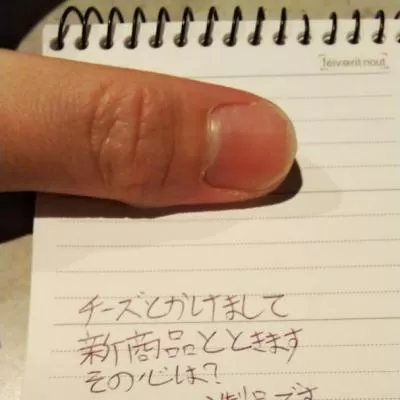 チーズとかけまして
新商品とときます
その心は?
製品です